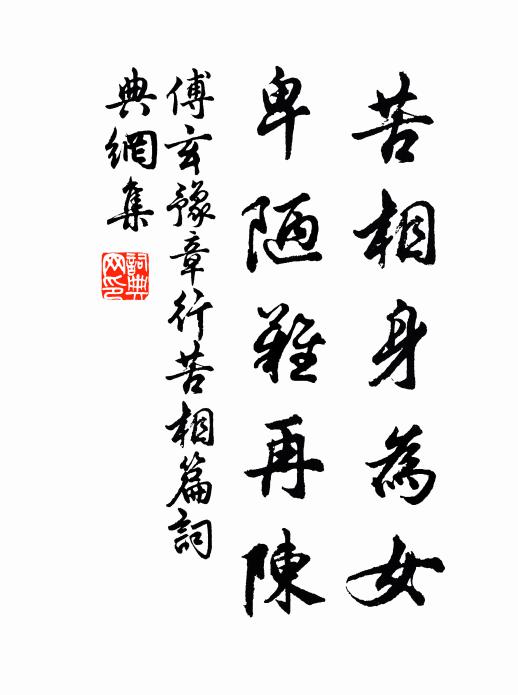 苦相身為女
卑陋難再陳
傅玄豫章行苦相篇詞
典網集
詞典网印